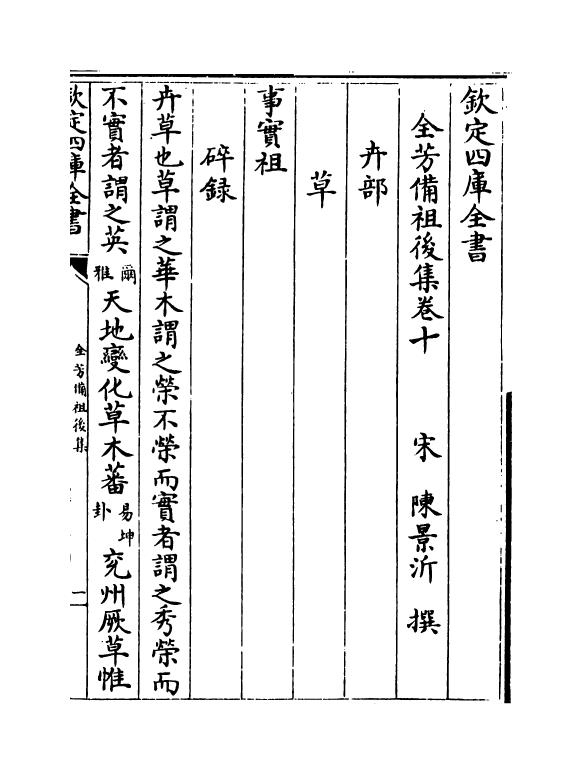 欽定四庫全書
全芳備祖後集卷十　宋　陳景沂　撰
卉部
草
事實祖
碎録
卉草也草謂之華木謂之榮不榮而實者謂之秀榮而
不實者謂之英爾雅天地變化草木蕃易坤卦兖州厥草惟
欽定四庫全書
全芳備祖後集